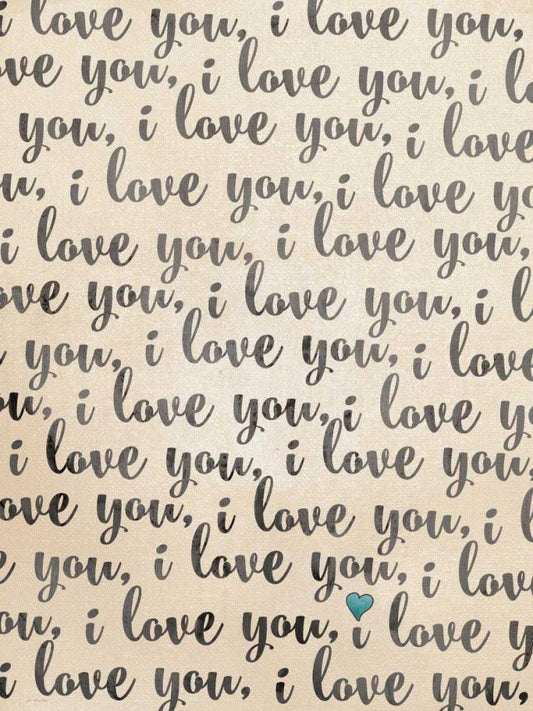 i love you, i love you,
ove you, i love you, i lo
you, i love you, i love
u, i love you, i love yo
i love you, i love you,
ove you, i love you, i l
you, i love you, i love
ou, i love you, i love y
i love you, i love you,
ove you, i love you, i l
e you, i love you, i love
ou, i love you, i love you
i love you, i love you,